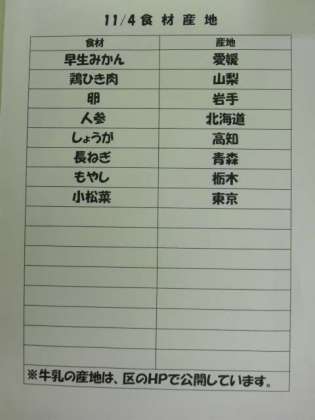 11/4食材産地
食材 産地
早生みかん 愛媛
鶏ひき肉 山梨
卵 岩手
人参 北海道
しょうが 高知
長ねぎ 青森
もやし 栃木
小松菜 東京
※牛乳の産地は、区のHPで公開しています。